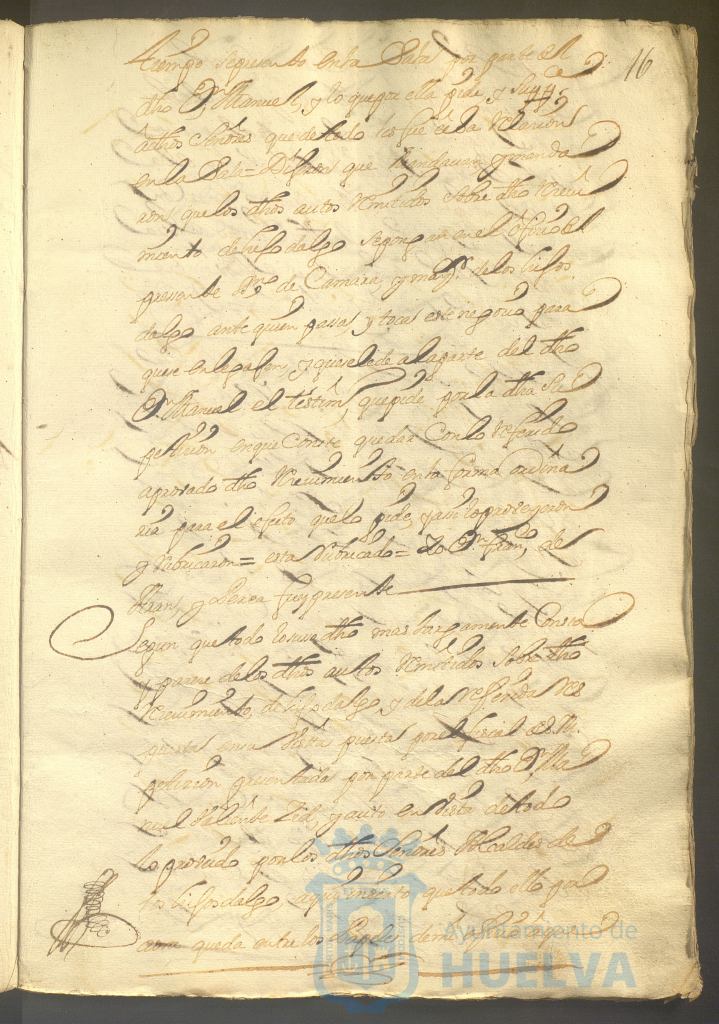 16
tiempo se presento en la Sala por parte del
dho Dn Manuel, y lo que por ella pide, y
dichos Señores que de todo les fue fecha relazion
en la Sala = Dijeron que mandavan y mandaron
que los dhos autos remitidos sobre dho recivi
miento de hijo dalgo se pongan en el oficio del
presente Sno de Camara, y mayor de los hijos
dalgo ante quien passa, y toca este negozio para
que se en legajen, y que se le de a la parte del dho
Dn Manuel el testimo que pide por la dha Su
peticion en que Conste quedar Con lo referido
aprovado dho recivimiento en la forma ordina
ria para el efecto que lo pide, y assi lo proveyeron
y rubricaron = esta rubricado = Yo Dn Franco de
fuy presente
Segun que todo lo suso dho mas largamente Consta
y parece de los dhos autos remitidos sobre dho
recivimiento, de hijo dalgo, y de la referida res
puesta en su vista puesta por el fiscal de S.M.
peticion presentada por parte del dho Dn Ma
nuel y auto en vista de todo
lo proveido por los dhos Señores Alcaldes de
los hijos dalgo, aque me remito que todo ello por
aora queda entre los papeles de mi
Ayuntamiento de
HUELVA